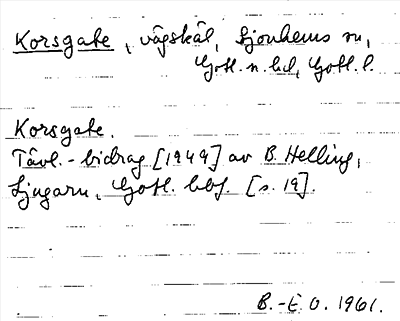 Korsgate, vägskäl, Sjonhems sn,
Gotl. n. hd, Gotl. l.
Korsgate.
Tävl.-bidrag [1949] av B. Helling,
Ljugarn, Gotl. bbf. [s. 19].
B.-E. O. 1961.